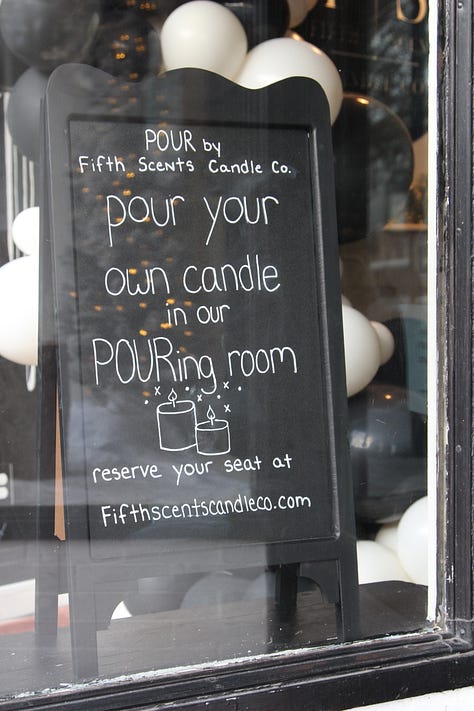 POUR by
Fifth Scents Candle Co.
pour your
own candle
in our
POURing room
reserve your seat at
Fifthscentscandleco.com